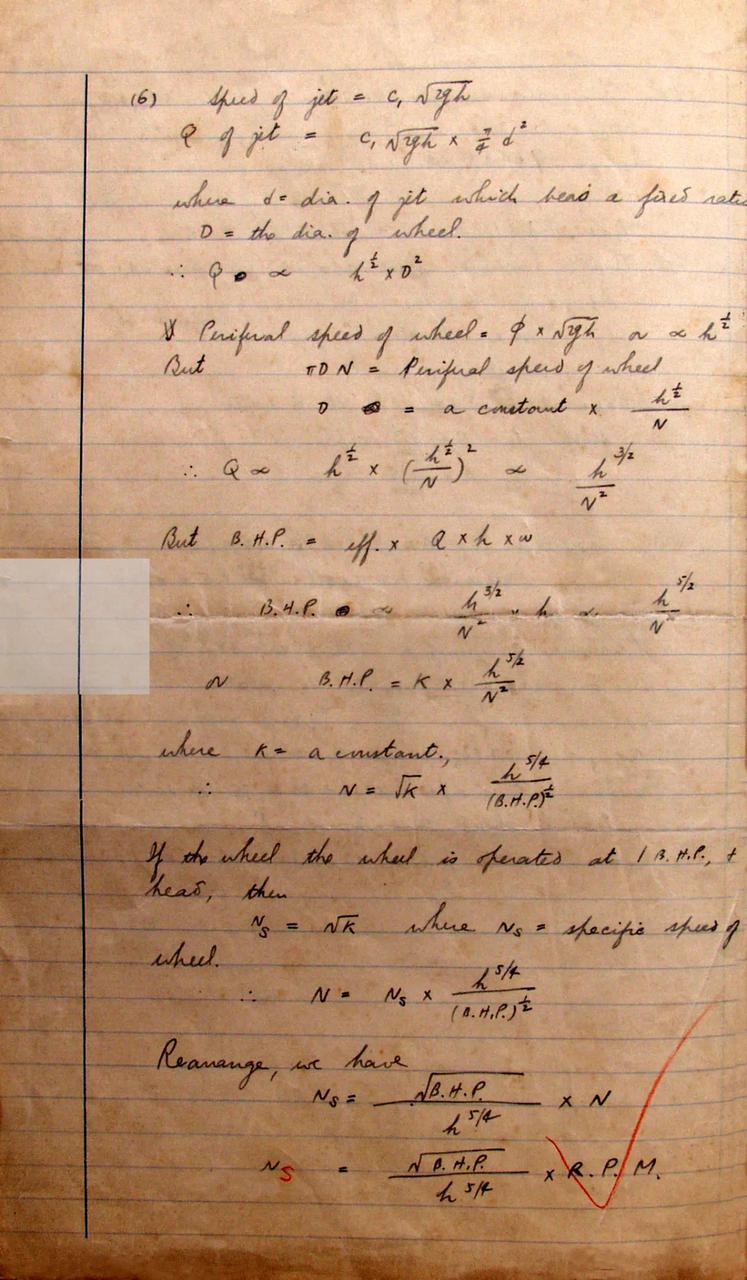 (6) Speed of jet = C, √2gh
Q of jet = C, √2gh × π/4 d²
where d = dia. of jet which bears a fixed ratio
D = the dia. of wheel.
∴ Q ∝ h^½ × D²
Periferal speed of wheel = φ × √2gh or ∝ h^½
But πDN = Periferal speed of wheel
D = a constant × h^½/N
∴ Q ∝ h^½ × (h^½/N)² ∝ h^3/2/N²
But B.H.P. = eff. × Q × h × w
∴ B.H.P. ∝ h^3/2/N² × h ∝ h^5/2/N²
or B.H.P. = K × h^5/2/N²
where K = a constant.,
∴ N = √K × h^5/4/(B.H.P.)^½
If the wheel the wheel is operated at 1 B.H.P., +
head, then
N_S = √K where N_S = specific speed of
wheel.
∴ N = N_S × h^5/4/(B.H.P.)^½
Rearrange, we have
N_S = √B.H.P./h^5/4 × N
N_S = √B.H.P./h^5/4 × R.P.M.